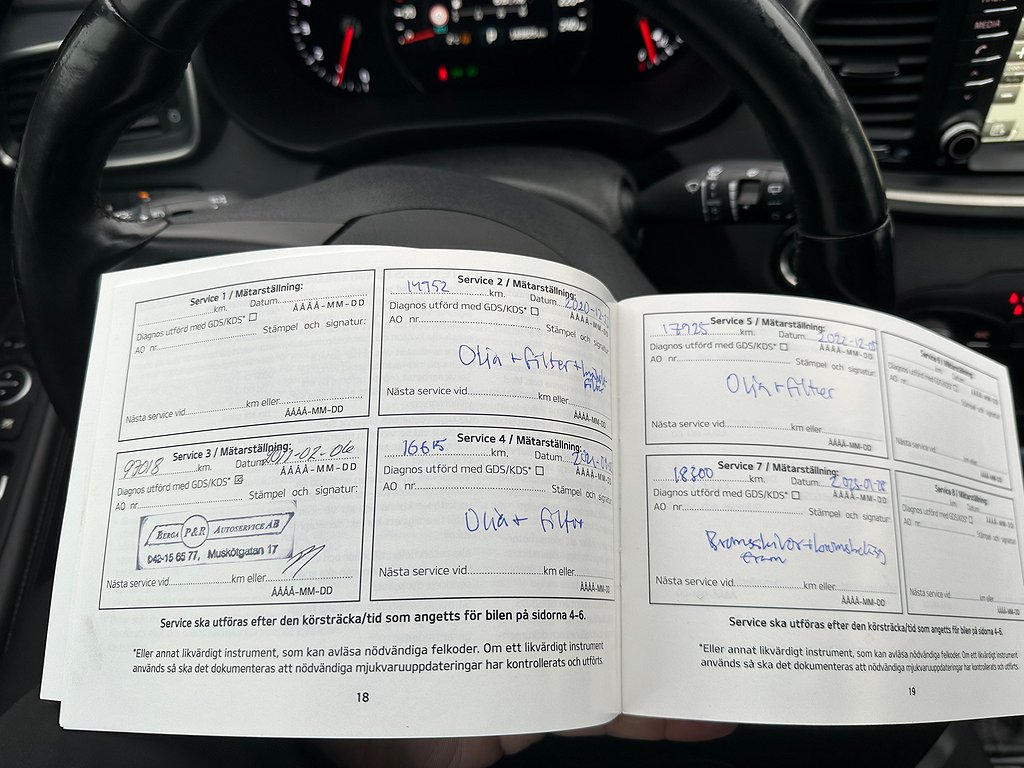 MEDIA
Service 1 / Mätarställning:
km. Datum
Diagnos utförd med GDS/KDS* ÅÅÅÅ-MM-DD
AO nr. Stämpel och signatur:
Nästa service vid km eller
ÅÅÅÅ-MM-DD
Service 2 / Mätarställning:
km. Datum
Diagnos utförd med GDS/KDS* ÅÅÅÅ-MM-DD
AO nr. Stämpel och signatur:
Olja + filter +
Nästa service vid km eller
ÅÅÅÅ-MM-DD
Service 3 / Mätarställning:
97018 km. Datum
Diagnos utförd med GDS/KDS* ÅÅÅÅ-MM-DD
AO nr. Stämpel och signatur:
BERGA P&R AUTOSERVICE AB
042-15 65 77, Muskötgatan 17
Nästa service vid km eller
ÅÅÅÅ-MM-DD
Service 4 / Mätarställning:
16615 km. Datum
Diagnos utförd med GDS/KDS* ÅÅÅÅ-MM-DD
AO nr. Stämpel och signatur
Olja + filter
Nästa service vid km eller
ÅÅÅÅ-MM-DD
Service ska utföras efter den körsträcka/tid som angetts för bilen på sidorna 4-6.
*Eller annat likvärdigt instrument, som kan avläsa nödvändiga felkoder. Om ett likvärdigt instrument
används så ska det dokumenteras att nödvändiga mjukvaruuppdateringar har kontrollerats och utförts.
18
Service 5 / Mätarställning:
17925 km. Datum
Diagnos utförd med GDS/KDS* ÅÅÅÅ-MM-DD
AO nr. Stämpel och signatur:
Olja + filter
Nästa service vid km eller
ÅÅÅÅ-MM-DD
Service 6 / Mätarställning:
km. Datum
Diagnos utförd med GDS/KDS*
AO nr. Stämpel och signatur
Nästa service vid km eller
ÅÅÅÅ-MM-DD
Service 7 / Mätarställning:
18200 km. Datum
Diagnos utförd med GDS/KDS* ÅÅÅÅ-MM-DD
AO nr. Stämpel och signatur:
Bromsskivor + bromsbelägg
fram
Nästa service vid km eller
ÅÅÅÅ-MM-DD
Service 8 / Mätarställning:
km. Datum
Diagnos utförd med GDS/KDS*
AO nr. Stämpel och signatur
Nästa service vid km eller
ÅÅÅÅ-MM-DD
Service ska utföras efter den körsträcka/tid som angetts för bilen på sidorna 4-6.
*Eller annat likvärdigt instrument, som kan avläsa nödvändiga felkoder. Om ett likvärdigt instrument
används så ska det dokumenteras att nödvändiga mjukvaruuppdateringar har kontrollerats och utförts.
19